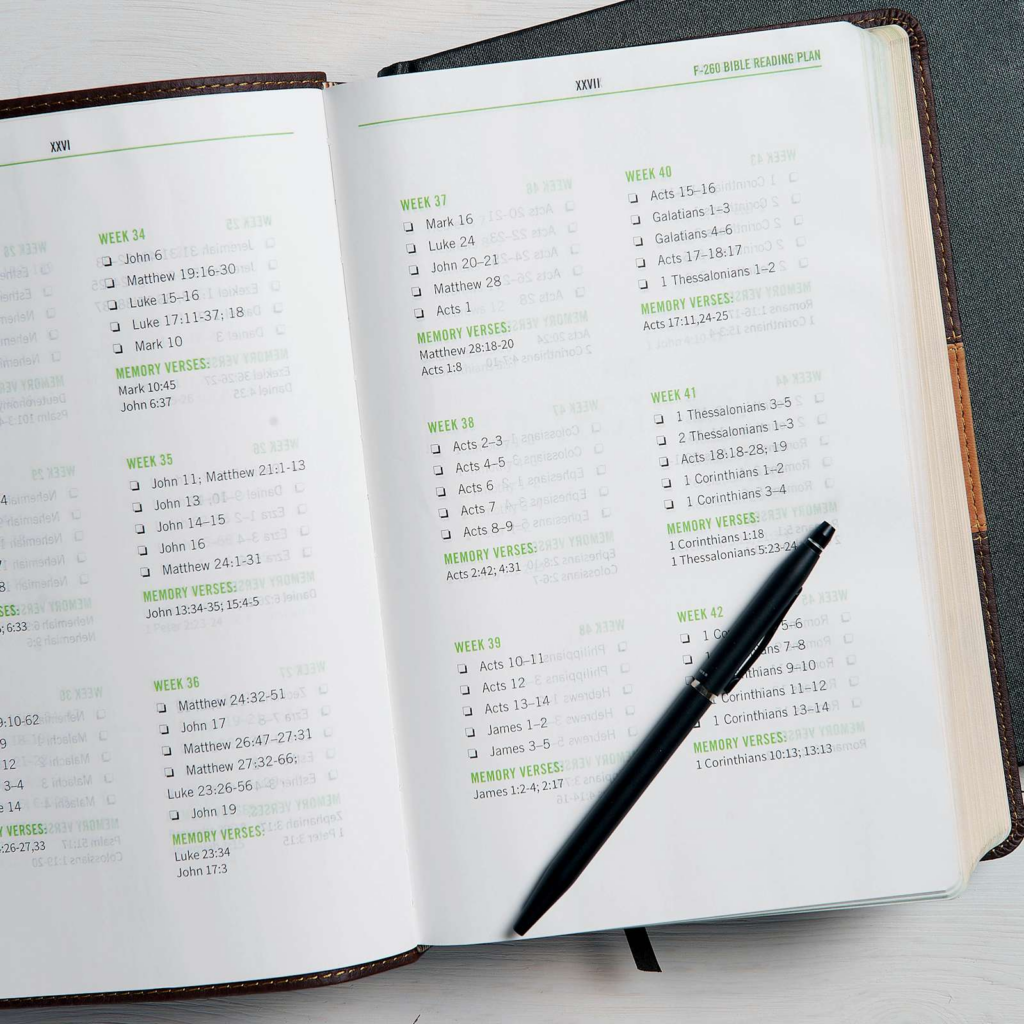 XXVI
9:10-62
12
3-4
WEEK 34
❏ John 6
❏ Matthew 19:16-30
❏ Luke 15–16
❏ Luke 17:11-37; 18
❏ Mark 10
MEMORY VERSES:
Mark 10:45
John 6:37
WEEK 35
❏ John 11; Matthew 21:1-13
❏ John 13
❏ John 14–15
❏ John 16
❏ Matthew 24:1-31
MEMORY VERSES:
John 13:34-35; 15:4-5
WEEK 36
❏ Matthew 24:32-51
❏ John 17
❏ Matthew 26:47–27:31
❏ Matthew 27:32-66;
Luke 23:26-56
❏ John 19
MEMORY VERSES:
Luke 23:34
John 17:3
XXVII
F-260 BIBLE READING PLAN
WEEK 37
❏ Mark 16
❏ Luke 24
❏ John 20–21
❏ Matthew 28
❏ Acts 1
MEMORY VERSES:
Matthew 28:18-20
Acts 1:8
WEEK 38
❏ Acts 2–3
❏ Acts 4–5
❏ Acts 6
❏ Acts 7
❏ Acts 8–9
MEMORY VERSES:
Acts 2:42; 4:31
WEEK 39
❏ Acts 10–11
❏ Acts 12
❏ Acts 13–14
❏ James 1–2
❏ James 3–5
MEMORY VERSES:
James 1:2-4; 2:17
WEEK 40
❏ Acts 15–16
❏ Galatians 1–3
❏ Galatians 4–6
❏ Acts 17–18:17
❏ 1 Thessalonians 1–2
MEMORY VERSES:
Acts 17:11,24-25
WEEK 41
❏ 1 Thessalonians 3–5
❏ 2 Thessalonians 1–3
❏ Acts 18:18-28; 19
❏ 1 Corinthians 1–2
❏ 1 Corinthians 3–4
MEMORY VERSES:
1 Corinthians 1:18
1 Thessalonians 5:23-24
WEEK 42
❏ 1 5–6
❏ 7–8
❏ 9–10
Corinthians 11–12
❏ 1 Corinthians 13–14
MEMORY VERSES:
1 Corinthians 10:13; 13:13